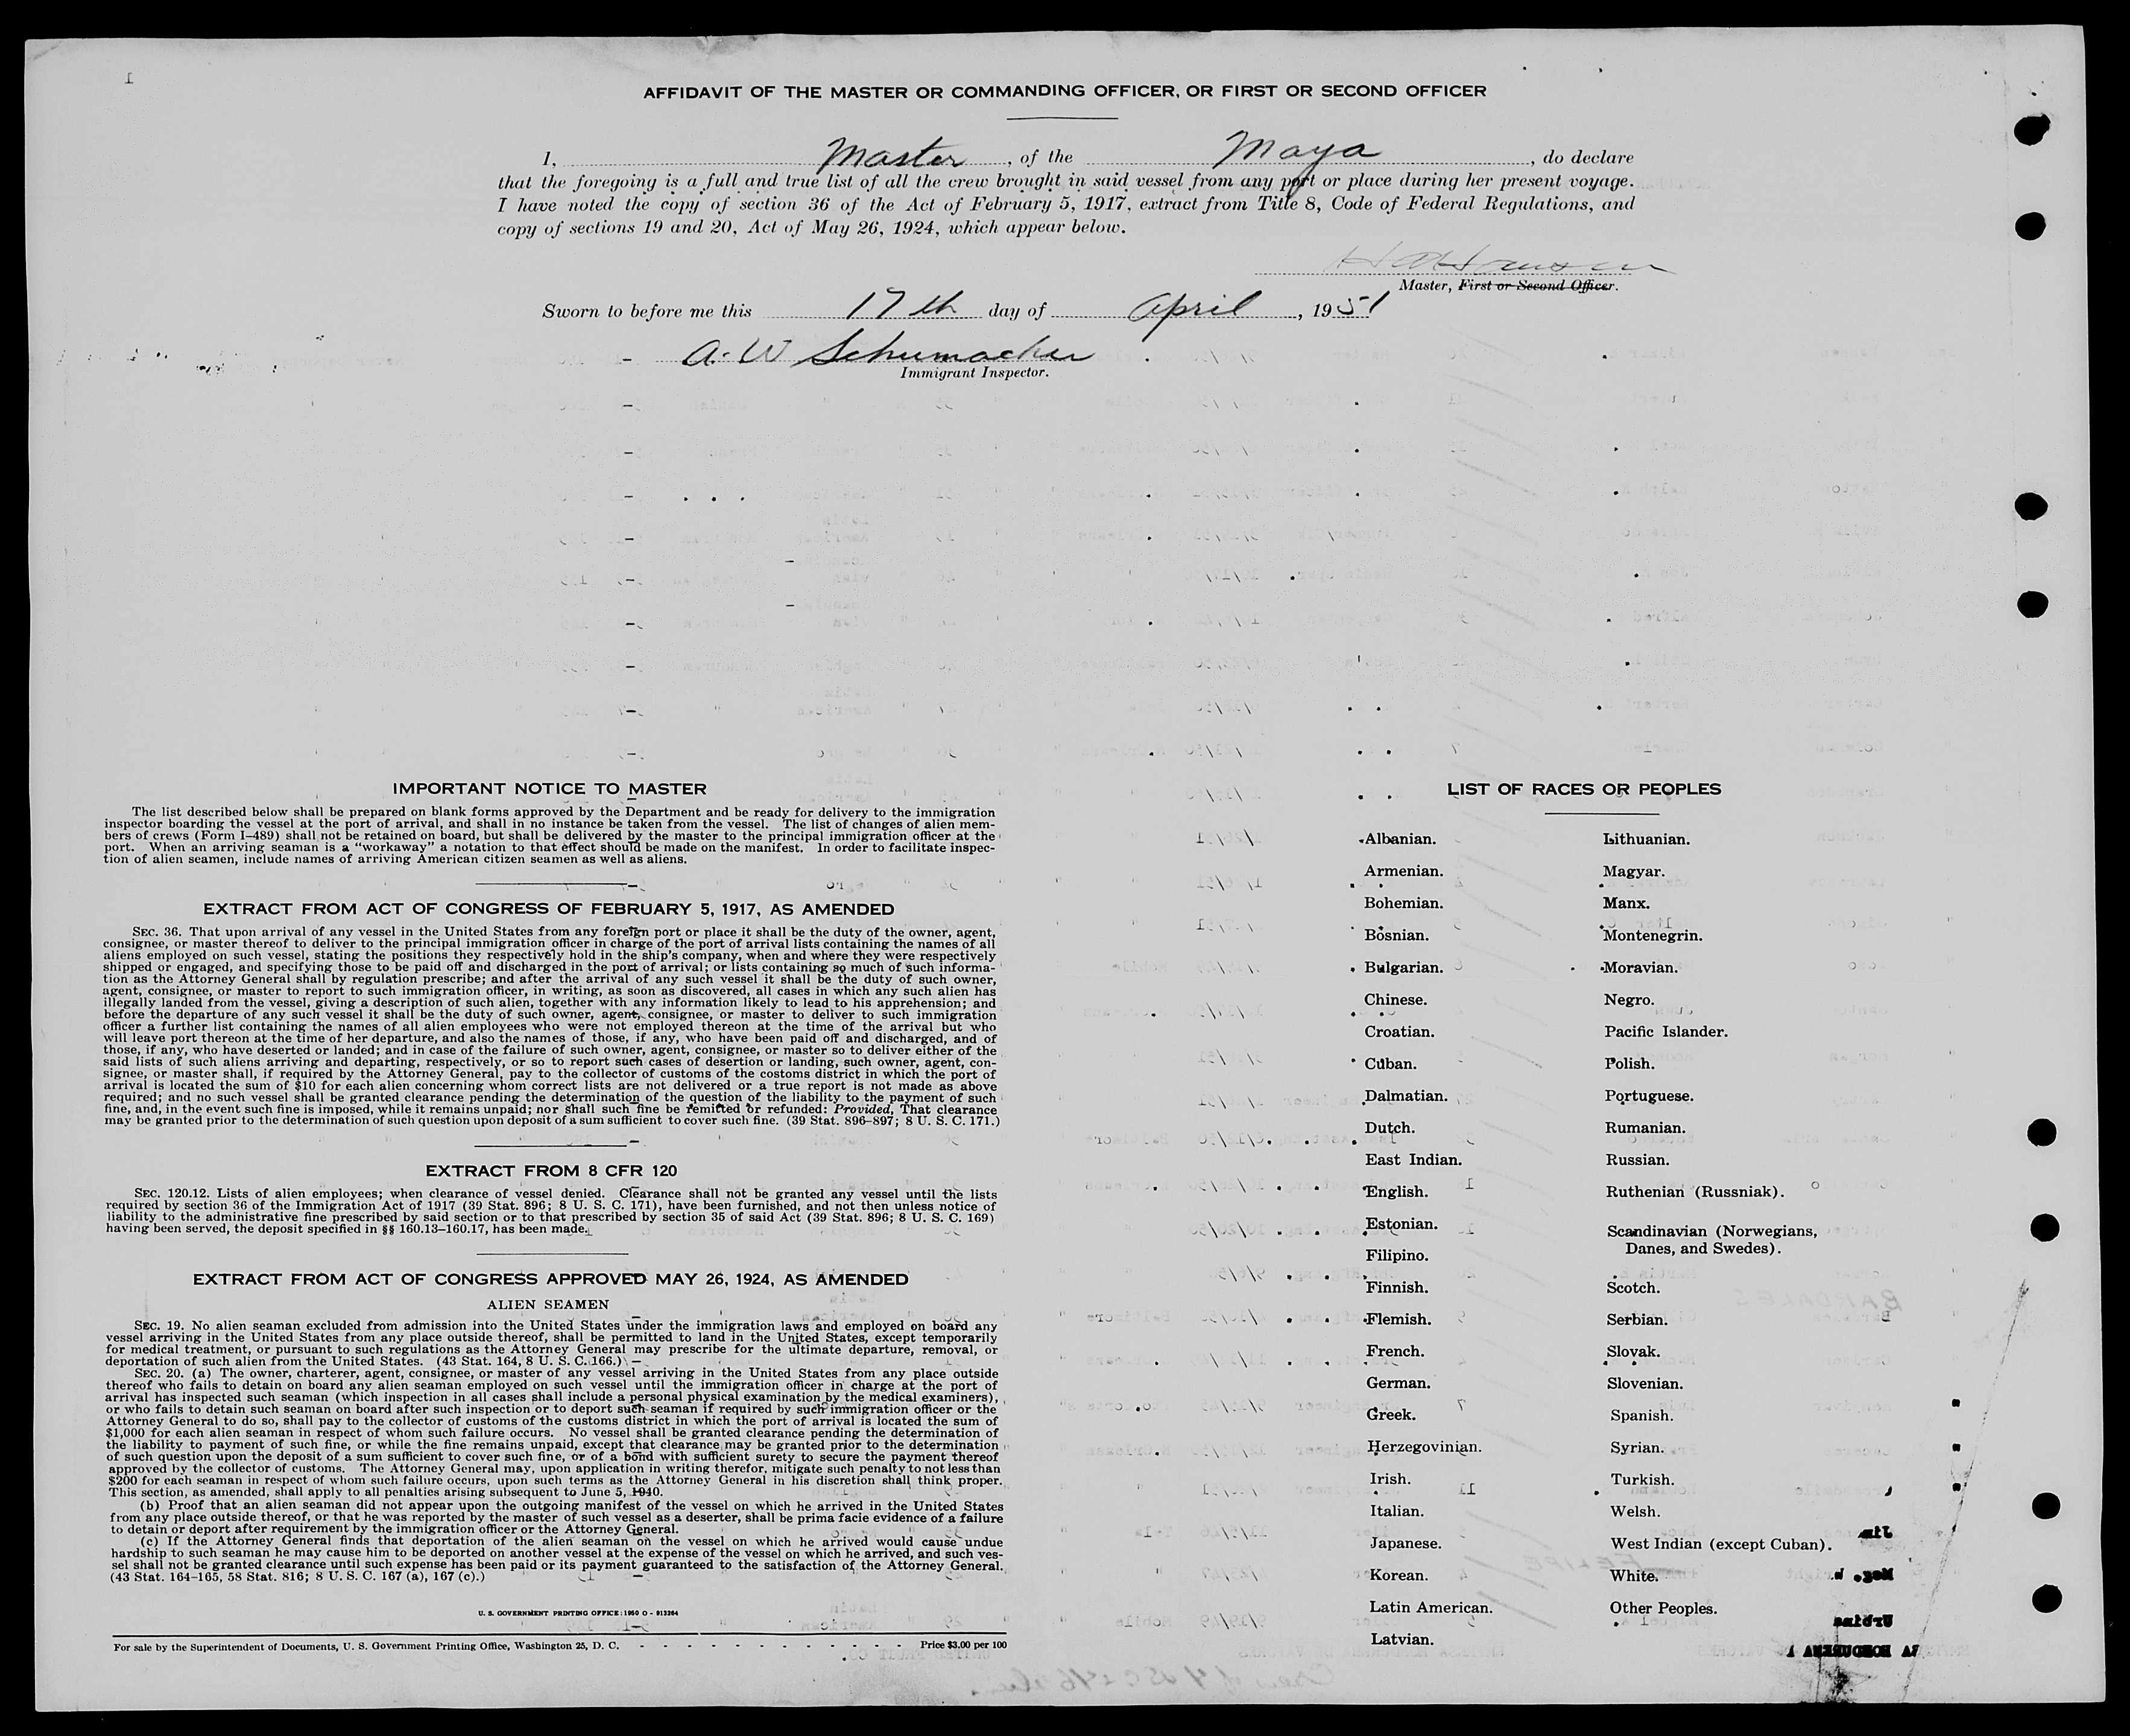 1
AFFIDAVIT OF THE MASTER OR COMMANDING OFFICER, OR FIRST OR SECOND OFFICER
I, Master, of the Maya, do declare
that the foregoing is a full and true list of all the crew brought in said vessel from any port or place during her present voyage.
I have noted the copy of section 36 of the Act of February 5, 1917, extract from Title 8, Code of Federal Regulations, and
copy of sections 19 and 20, Act of May 26, 1924, which appear below.
Master, First or Second Officer.
Sworn to before me this 17th day of April, 1951
A. W Schumacher
Immigrant Inspector.
IMPORTANT NOTICE TO MASTER
The list described below shall be prepared on blank forms approved by the Department and be ready for delivery to the immigration
inspector boarding the vessel at the port of arrival, and shall in no instance be taken from the vessel. The list of changes of alien mem-
bers of crews (Form I–489) shall not be retained on board, but shall be delivered by the master to the principal immigration officer at the
port. When an arriving seaman is a "workaway" a notation to that effect should be made on the manifest. In order to facilitate inspec-
tion of alien seamen, include names of arriving American citizen seamen as well as aliens.
EXTRACT FROM ACT OF CONGRESS OF FEBRUARY 5, 1917, AS AMENDED
SEC. 36. That upon arrival of any vessel in the United States from any foreign port or place it shall be the duty of the owner, agent,
consignee, or master thereof to deliver to the principal immigration officer in charge of the port of arrival lists containing the names of all
aliens employed on such vessel, stating the positions they respectively hold in the ship's company, when and where they were respectively
shipped or engaged, and specifying those to be paid off and discharged in the port of arrival; or lists containing so much of such informa-
tion as the Attorney General shall by regulation prescribe; and after the arrival of any such vessel it shall be the duty of such owner,
agent, consignee, or master to report to such immigration officer, in writing, as soon as discovered, all cases in which any such alien has
illegally landed from the vessel, giving a description of such alien, together with any information likely to lead to his apprehension; and
before the departure of any such vessel it shall be the duty of such owner, agent, consignee, or master to deliver to such immigration
officer a further list containing the names of all alien employees who were not employed thereon at the time of the arrival but who
will leave port thereon at the time of her departure, and also the names of those, if any, who have been paid off and discharged, and of
those, if any, who have deserted or landed; and in case of the failure of such owner, agent, consignee, or master so to deliver either of the
said lists of such aliens arriving and departing, respectively, or so to report such cases of desertion or landing, such owner, agent, con-
signee, or master shall, if required by the Attorney General, pay to the collector of customs of the costoms district in which the port of
arrival is located the sum of $10 for each alien concerning whom correct lists are not delivered or a true report is not made as above
required; and no such vessel shall be granted clearance pending the determination of the question of the liability to the payment of such
fine, and, in the event such fine is imposed, while it remains unpaid; nor shall such fine be remitted or refunded: Provided, That clearance
may be granted prior to the determination of such question upon deposit of a sum sufficient to cover such fine. (39 Stat. 896–897; 8 U. S. C. 171.)
EXTRACT FROM 8 CFR 120
SEC. 120.12. Lists of alien employees; when clearance of vessel denied. Clearance shall not be granted any vessel until the lists
required by section 36 of the Immigration Act of 1917 (39 Stat. 896; 8 U. S. C. 171), have been furnished, and not then unless notice of
liability to the administrative fine prescribed by said section or to that prescribed by section 35 of said Act (39 Stat. 896; 8 U. S. C. 169)
having been served, the deposit specified in §§ 160.13–160.17, has been made.
EXTRACT FROM ACT OF CONGRESS APPROVED MAY 26, 1924, AS AMENDED
ALIEN SEAMEN
SEC. 19. No alien seaman excluded from admission into the United States under the immigration laws and employed on board any
vessel arriving in the United States from any place outside thereof, shall be permitted to land in the United States, except temporarily
for medical treatment, or pursuant to such regulations as the Attorney General may prescribe for the ultimate departure, removal, or
deportation of such alien from the United States. (43 Stat. 164, 8 U. S. C. 166.)
SEC. 20. (a) The owner, charterer, agent, consignee, or master of any vessel arriving in the United States from any place outside
thereof who fails to detain on board any alien seaman employed on such vessel until the immigration officer in charge at the port of
arrival has inspected such seaman (which inspection in all cases shall include a personal physical examination by the medical examiners),
or who fails to detain such seaman on board after such inspection or to deport such seaman if required by such immigration officer or the
Attorney General to do so, shall pay to the collector of customs of the customs district in which the port of arrival is located the sum of
$1,000 for each alien seaman in respect of whom such failure occurs. No vessel shall be granted clearance pending the determination of
the liability to payment of such fine, or while the fine remains unpaid, except that clearance may be granted prior to the determination
of such question upon the deposit of a sum sufficient to cover such fine, or of a bond with sufficient surety to secure the payment thereof
approved by the collector of customs. The Attorney General may, upon application in writing therefor, mitigate such penalty to not less than
$200 for each seaman in respect of whom such failure occurs, upon such terms as the Attorney General in his discretion shall think proper.
This section, as amended, shall apply to all penalties arising subsequent to June 5, 1940.
(b) Proof that an alien seaman did not appear upon the outgoing manifest of the vessel on which he arrived in the United States
from any place outside thereof, or that he was reported by the master of such vessel as a deserter, shall be prima facie evidence of a failure
to detain or deport after requirement by the immigration officer or the Attorney General.
(c) If the Attorney General finds that deportation of the alien seaman on the vessel on which he arrived would cause undue
hardship to such seaman he may cause him to be deported on another vessel at the expense of the vessel on which he arrived, and such ves-
sel shall not be granted clearance until such expense has been paid or its payment guaranteed to the satisfaction of the Attorney General.
(43 Stat. 164–165, 58 Stat. 816; 8 U. S. C. 167 (a), 167 (c).)
U. S. GOVERNMENT PRINTING OFFICE : 1950 O - 913264
For sale by the Superintendent of Documents, U. S. Government Printing Office, Washington 25, D. C. - - - - - - - - - - - - Price $3.00 per 100
LIST OF RACES OR PEOPLES
Albanian.
Armenian.
Bohemian.
Bosnian.
Bulgarian.
Chinese.
Croatian.
Cuban.
Dalmatian.
Dutch.
East Indian.
English.
Estonian.
Filipino.
Finnish.
Flemish.
French.
German.
Greek.
Herzegovinian.
Irish.
Italian.
Japanese.
Korean.
Latin American.
Latvian.
Lithuanian.
Magyar.
Manx.
Montenegrin.
Moravian.
Negro.
Pacific Islander.
Polish.
Portuguese.
Rumanian.
Russian.
Ruthenian (Russniak).
Scandinavian (Norwegians,
Danes, and Swedes).
Scotch.
Serbian.
Slovak.
Slovenian.
Spanish.
Syrian.
Turkish.
Welsh.
West Indian (except Cuban).
White.
Other Peoples.